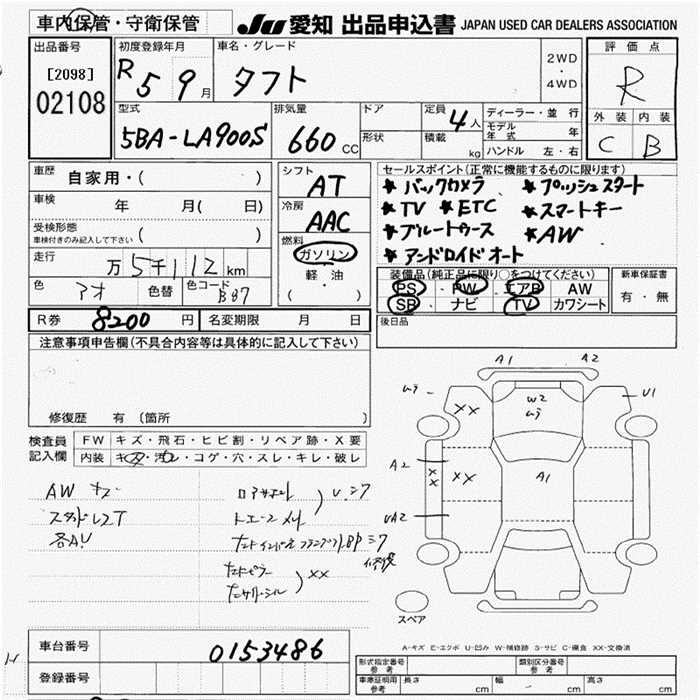 車内保管・守衛保管
JU 愛知 出品申込書 JAPAN USED CAR DEALERS ASSOCIATION
出品番号
[2098]
02108
初度登録年月
R5 9月
車名・グレード
タフト
2WD
・
4WD
評価点
R
外装 内装
C B
型式
5BA-LA900S
排気量
660 CC
ドア
形状
定員 4人
積載 kg
ディーラー・並行
モデル年式 年
ハンドル 左・右
車歴 自家用・( )
車検 年 月( 日)
受検形態
車検付きのみ記入して下さい ( )
走行 万5千112km
色 アオ 色替 色コード B87
シフト
AT
冷房
AAC
燃料
ガソリン
・
軽油
( ・ )
セールスポイント(正常に機能するものに限ります)
★バックカメラ ★プッシュスタート
★TV ★ETC ★スマートキー
★ブルートゥース ★AW
★アンドロイドオート
装備品(純正品に限り○をつけてください)
PS・PW・エアB・AW
SR・ナビ・TV・カワシート
新車保証書
有・無
R券 8200円 名変期限 月 日
後日品
注意事項申告欄(不具合内容等は具体的に記入して下さい)
修復歴 有 (箇所 )
検査員記入欄
FW キズ・飛石・ヒビ割・リペア跡・X要
内装 キズ・汚れ・コゲ・穴・スレ・キレ・破レ
AW キズ
スタッドレスT
A1 A2
U1
XX
W2
A2
XX
XX
A1
UA2
XX
スペア
A-キズ E-エクボ U-凹み W-補修跡 S-サビ C-腐食 XX-交換済
車台番号 0153486
登録番号
形式指定番号 参考
類別区分番号 参考
車庫証明用 参考
長さ cm 幅 cm 高さ cm